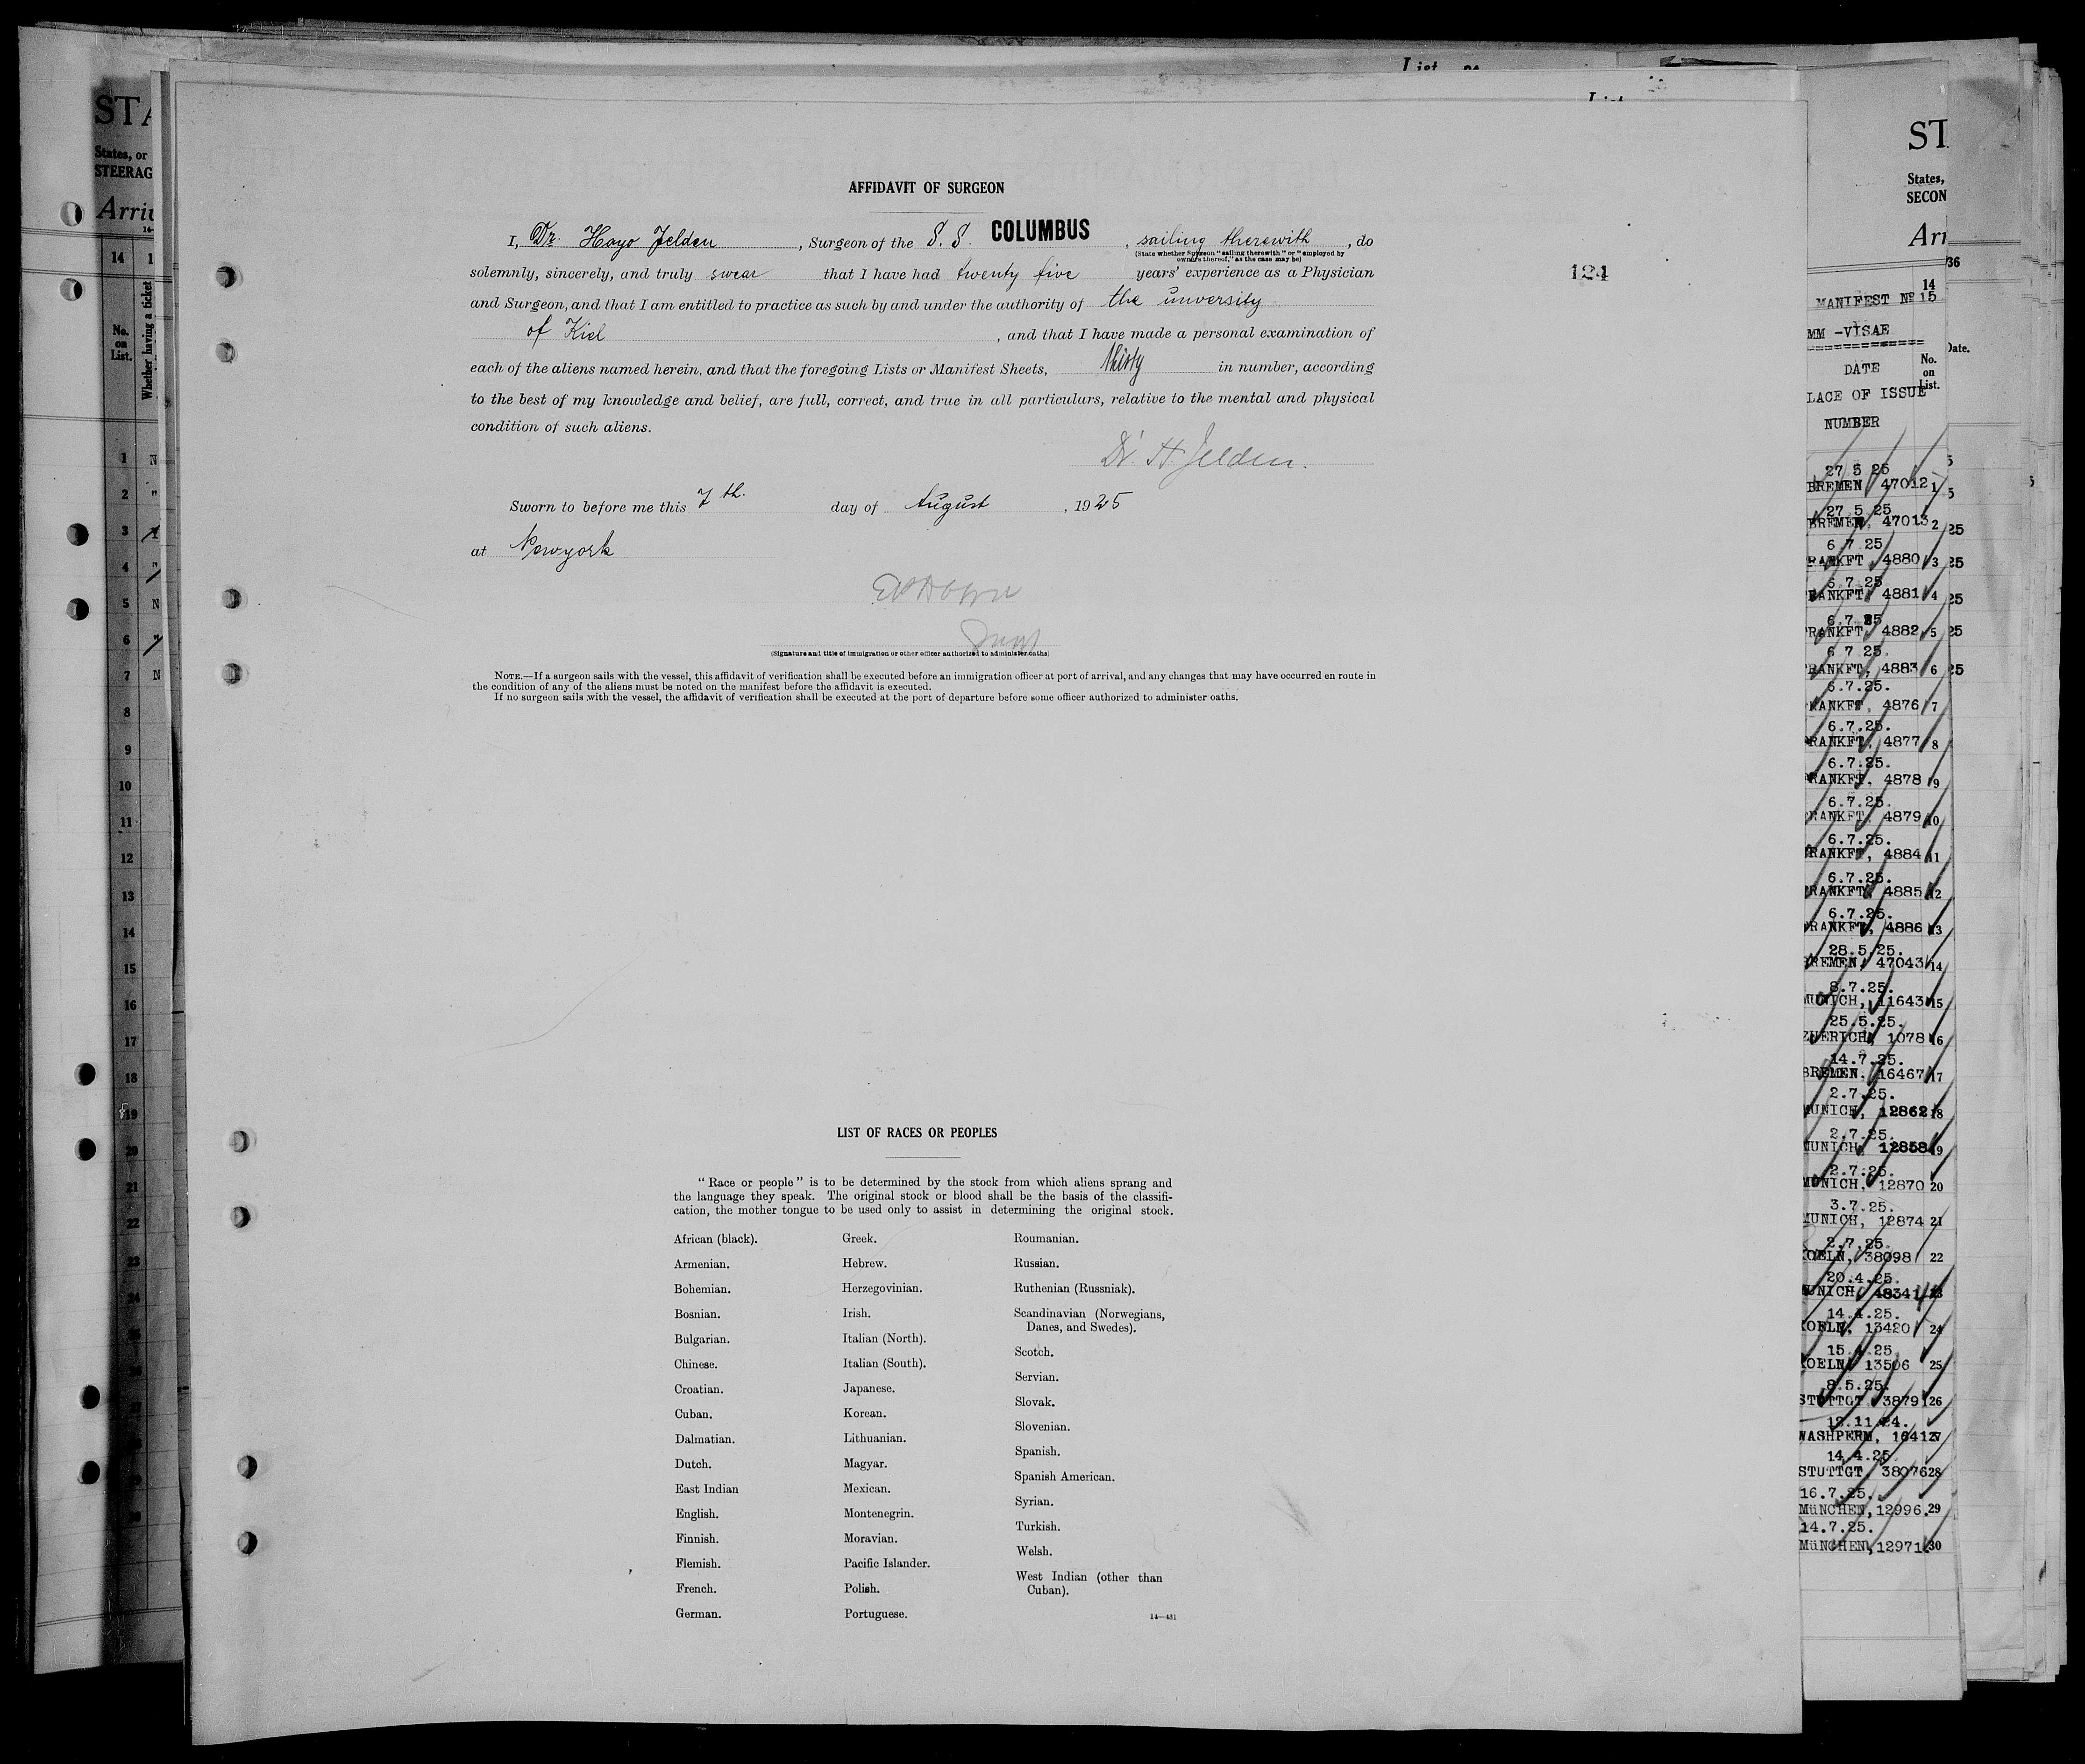 List
ST
States, or
STEERAG
Arriv
14
No.
on
List.
Whether having a ticket
1 N
2 "
3
4 "
5 N
6 "
7 N
8
9
10
11
12
13
14
15
16
17
18
19
20
21
22
23
24
AFFIDAVIT OF SURGEON
I, Dr. Hayo Jelden, Surgeon of the S. S. COLUMBUS, sailing therewith, do
(State whether Surgeon "sailing therewith" or "employed by
owners thereof," as the case may be)
solemnly, sincerely, and truly swear that I have had twenty five years' experience as a Physician
124
and Surgeon, and that I am entitled to practice as such by and under the authority of the university
of Kiel, and that I have made a personal examination of
each of the aliens named herein, and that the foregoing Lists or Manifest Sheets, thirty in number, according
to the best of my knowledge and belief, are full, correct, and true in all particulars, relative to the mental and physical
condition of such aliens.
Dr. H. Jelden.
Sworn to before me this 7th. day of August, 1925
at Newyork
(Signature and title of immigration or other officer authorized to administer oaths)
NOTE.—If a surgeon sails with the vessel, this affidavit of verification shall be executed before an immigration officer at port of arrival, and any changes that may have occurred en route in
the condition of any of the aliens must be noted on the manifest before the affidavit is executed.
If no surgeon sails with the vessel, the affidavit of verification shall be executed at the port of departure before some officer authorized to administer oaths.
LIST OF RACES OR PEOPLES
"Race or people" is to be determined by the stock from which aliens sprang and
the language they speak. The original stock or blood shall be the basis of the classifi-
cation, the mother tongue to be used only to assist in determining the original stock.
African (black).
Armenian.
Bohemian.
Bosnian.
Bulgarian.
Chinese.
Croatian.
Cuban.
Dalmatian.
Dutch.
East Indian
English.
Finnish.
Flemish.
French.
German.
Greek.
Hebrew.
Herzegovinian.
Irish.
Italian (North).
Italian (South).
Japanese.
Korean.
Lithuanian.
Magyar.
Mexican.
Montenegrin.
Moravian.
Pacific Islander.
Polish.
Portuguese.
Roumanian.
Russian.
Ruthenian (Russniak).
Scandinavian (Norwegians,
Danes, and Swedes).
Scotch.
Servian.
Slovak.
Slovenian.
Spanish.
Spanish American.
Syrian.
Turkish.
Welsh.
West Indian (other than
Cuban).
14—431
ST
States,
SECON
Arr
14
MANIFEST Nº 15
MM -VISAE
============
DATE
No.
on
List.
LACE OF ISSUE
NUMBER
27 5 25
BREMEN 47012 1
27.5 25
BREMEN, 47013 2
6.7 25
RANKFT 4880 3
6.7.25
RANKFT, 4881 4
6.7.25
RANKFT, 4882 5
6 7 25.
RANKFT, 4883 6
6.7.25.
RANKFT, 4876 7
6.7.25.
RANKFT, 4877 8
6.7.25.
RANKFT. 4878 9
6.7.25.
RANKFT, 4879 10
6.7.25.
RANKFT, 4884 11
6.7.25.
RANKFT, 4885 12
6.7.25.
RANKFT, 4886 13
28.5.25.
BREMEN, 47043 14
8.7.25.
MUNICH, 11643 15
25.5.25.
ZUERICH, 1078 16
14.7.25.
BREMEN, 16467 17
2.7.25.
MUNICH, 12862 18
2.7.25.
MUNICH, 12858 19
2.7.25.
MUNICH, 12870 20
3.7.25.
MUNICH, 12874 21
2.7.25.
KOELN, 38098 22
20.4.25.
MUNICH, 48341 23
14.4.25.
KOELN, 13420 24
15.4.25
KOELN 13506 25
8.5.25.
STUTTGT 3879 26
12.11.24.
WASHPERM, 16412 27
14.4.25.
STUTTGT 38076 28
16.7.25.
MüNCHEN, 12996. 29
14.7.25.
MüNCHEN, 12971. 30
36
Date.